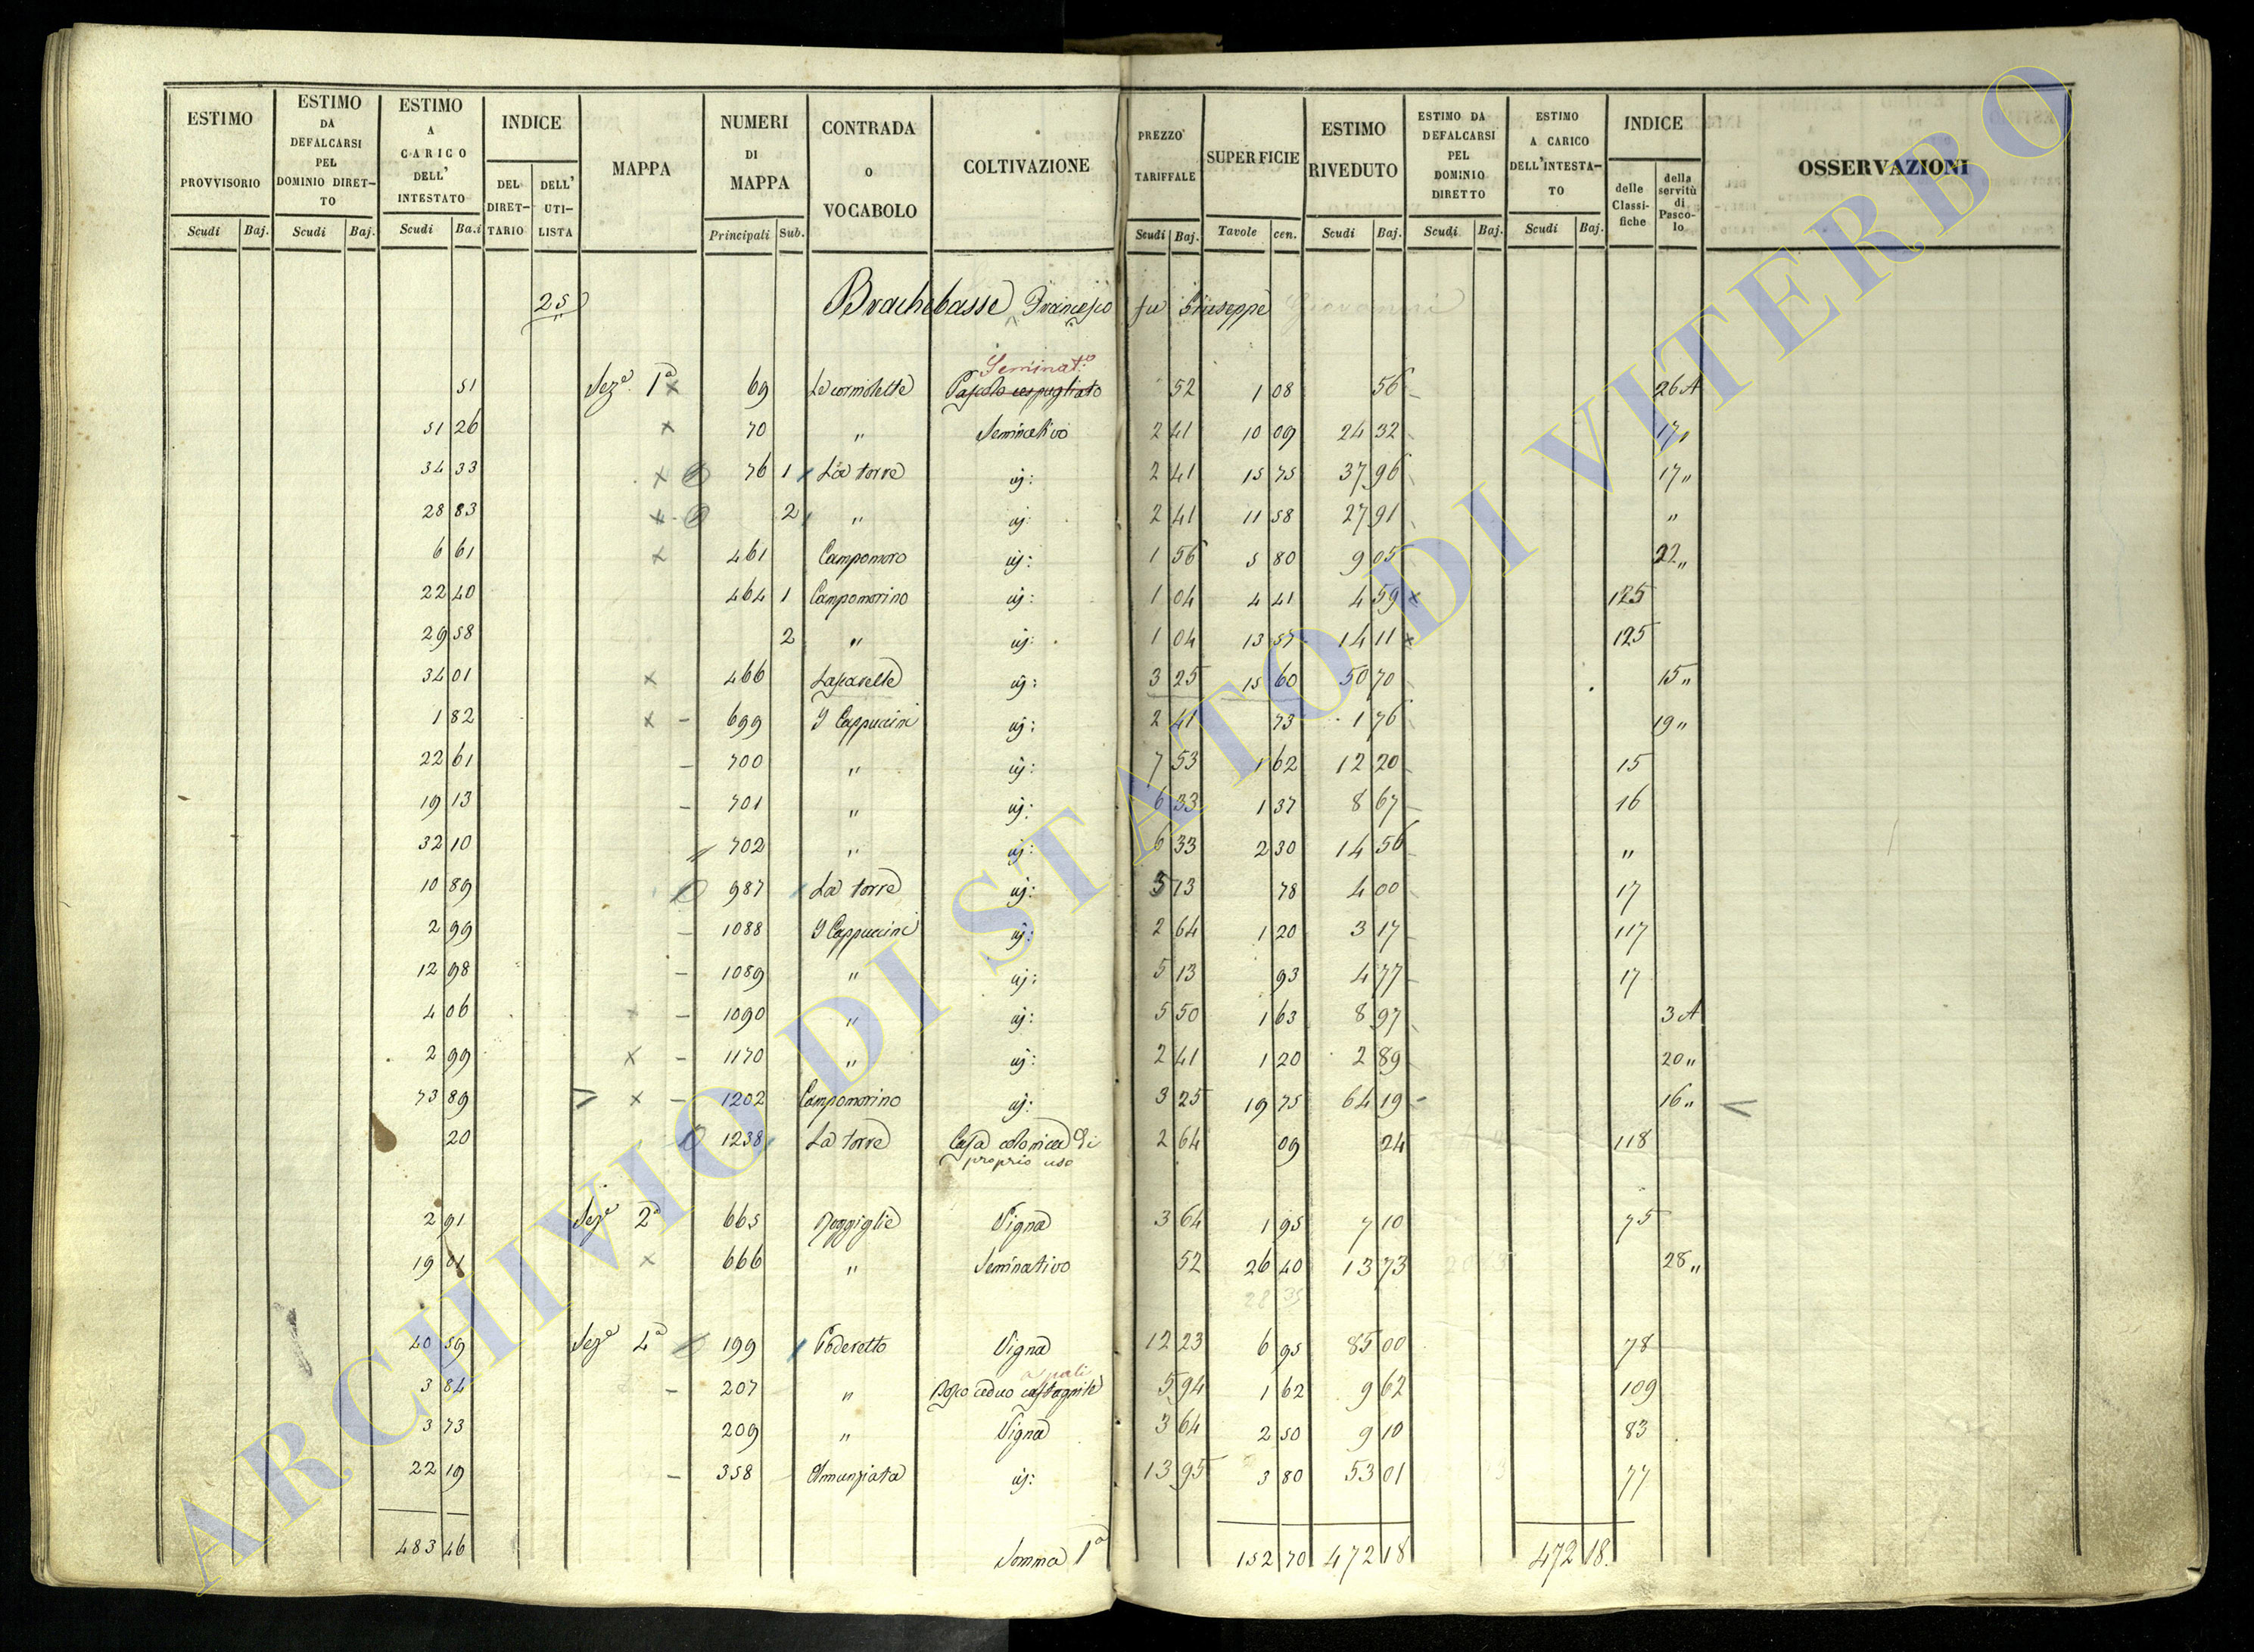 ESTIMO PROVVISORIO Scudi Baj.
ESTIMO DA DEFALCARSI PEL DOMINIO DIRETTO Scudi Baj.
ESTIMO A CARICO DELL' INTESTATO Scudi Ba.i
INDICE DEL DIRETTARIO DELL' UTILISTA
MAPPA
NUMERI DI MAPPA Principali Sub.
CONTRADA O VOCABOLO
COLTIVAZIONE
PREZZO TARIFFALE Scudi Baj.
SUPERFICIE Tavole cen.
ESTIMO RIVEDUTO Scudi Baj.
ESTIMO DA DEFALCARSI PEL DOMINIO DIRETTO Scudi Baj.
ESTIMO A CARICO DELL'INTESTATO Scudi Baj.
INDICE delle Classifiche della servitù di Pascolo
OSSERVAZIONI
25 Brachebasse Francesco fu Giuseppe Giovanni
Seminat.o
51 Sez.e 1a x 69 Le cormolette Pascolo cespugliato 52 1 08 56 26 A
51 26 x 70 " Seminativo 2 41 10 09 24 32 17 "
34 33 x 76 1 La torre id: 2 41 15 75 37 96 17 "
28 83 x 2 " id: 2 41 11 58 27 91 "
6 61 x 461 Campomoro id: 1 56 5 80 9 05 22 "
22 40 464 1 Campomorino id: 1 04 4 41 4 59 x 125
29 58 2 " id: 1 04 13 57 14 11 x 125
34 01 x 466 id: 3 25 15 60 50 70 15 "
1 82 x - 699 I Cappuccini id: 2 41 73 1 76 19 "
22 61 - 700 " id: 7 53 1 62 12 20 15
19 13 - 701 " id: 6 33 1 37 8 67 16
32 10 702 " id: 6 33 2 30 14 56 "
10 89 987 La torre id: 5 13 78 4 00 17
2 99 - 1088 I Cappuccini id: 2 64 1 20 3 17 117
12 98 - 1089 " id: 5 13 93 4 77 17
4 06 x - 1090 " id: 5 50 1 63 8 97 3 A
2 99 x - 1170 " id: 2 41 1 20 2 89 20 "
73 89 > x - 1202 Campomorino id: 3 25 19 75 64 19 16 " <
20 1238 La torre Casa colonica di proprio uso 2 64 09 24 118
2 91 Sez.e 2a 665 Poggiglie Vigna 3 64 1 95 7 10 75
19 01 x 666 " Seminativo 52 26 40 13 73 28 "
28 35
40 59 Sez.e 4a 199 Poderetto Vigna 12 23 6 95 85 00 78
a pali
3 84 - 207 " Bosco ceduo castagnile 5 94 1 62 9 62 109
3 73 209 " Vigna 3 64 2 50 9 10 83
22 19 - 358 Annunziata id: 13 95 3 80 53 01 77
483 46 Somma 1a 152 70 472 18 472 18.
ARCHIVIO DI STATO DI VITERBO